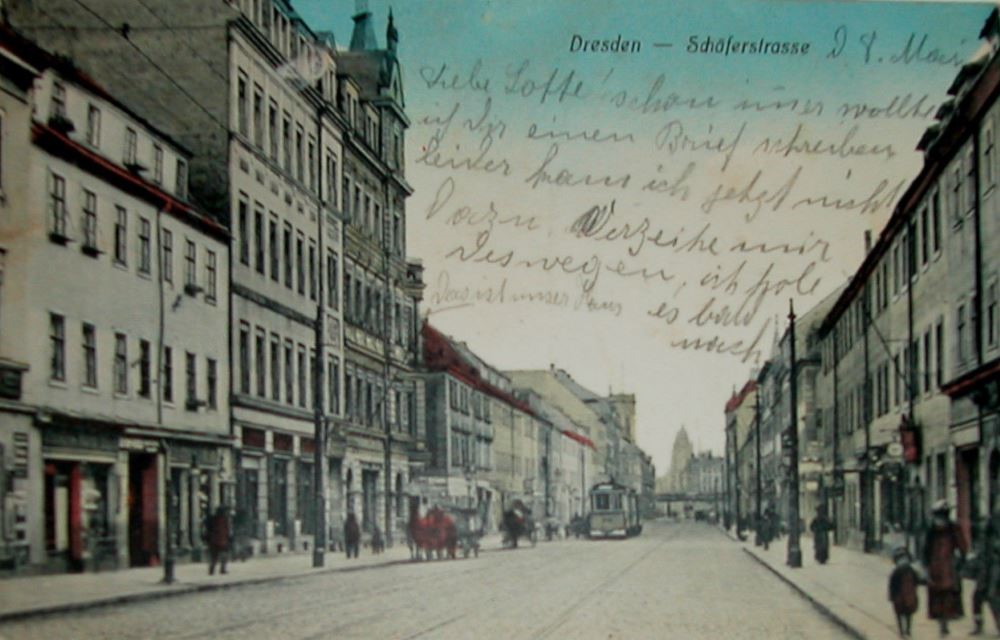 Dresden — Schäferstrasse
D 8. Mai
Liebe Lotte! schon immer wollte
ich Dir einen Brief schreiben
leider kann ich jetzt nicht
Dazu. Verzeihe mir
deswegen, ich hole
es bald
nach
Das ist unser Haus